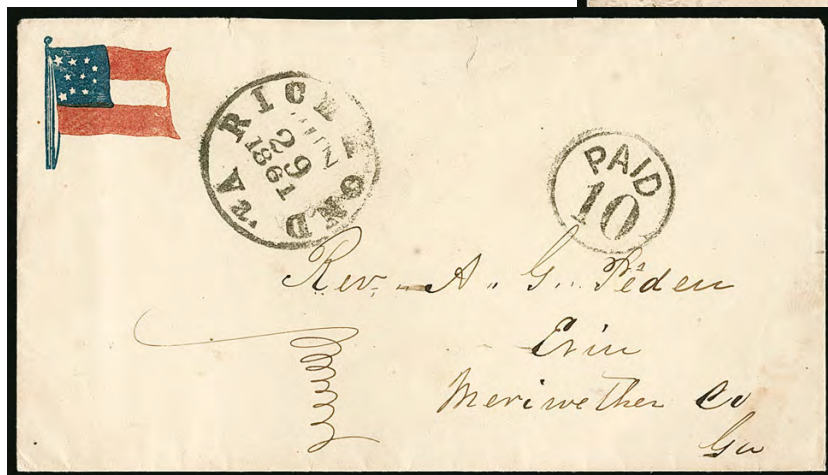 RICHMOND VA.
JUN
29
1861
PAID
10
Rev. A. G. Peden
Erin
Meriwether Co
Ga